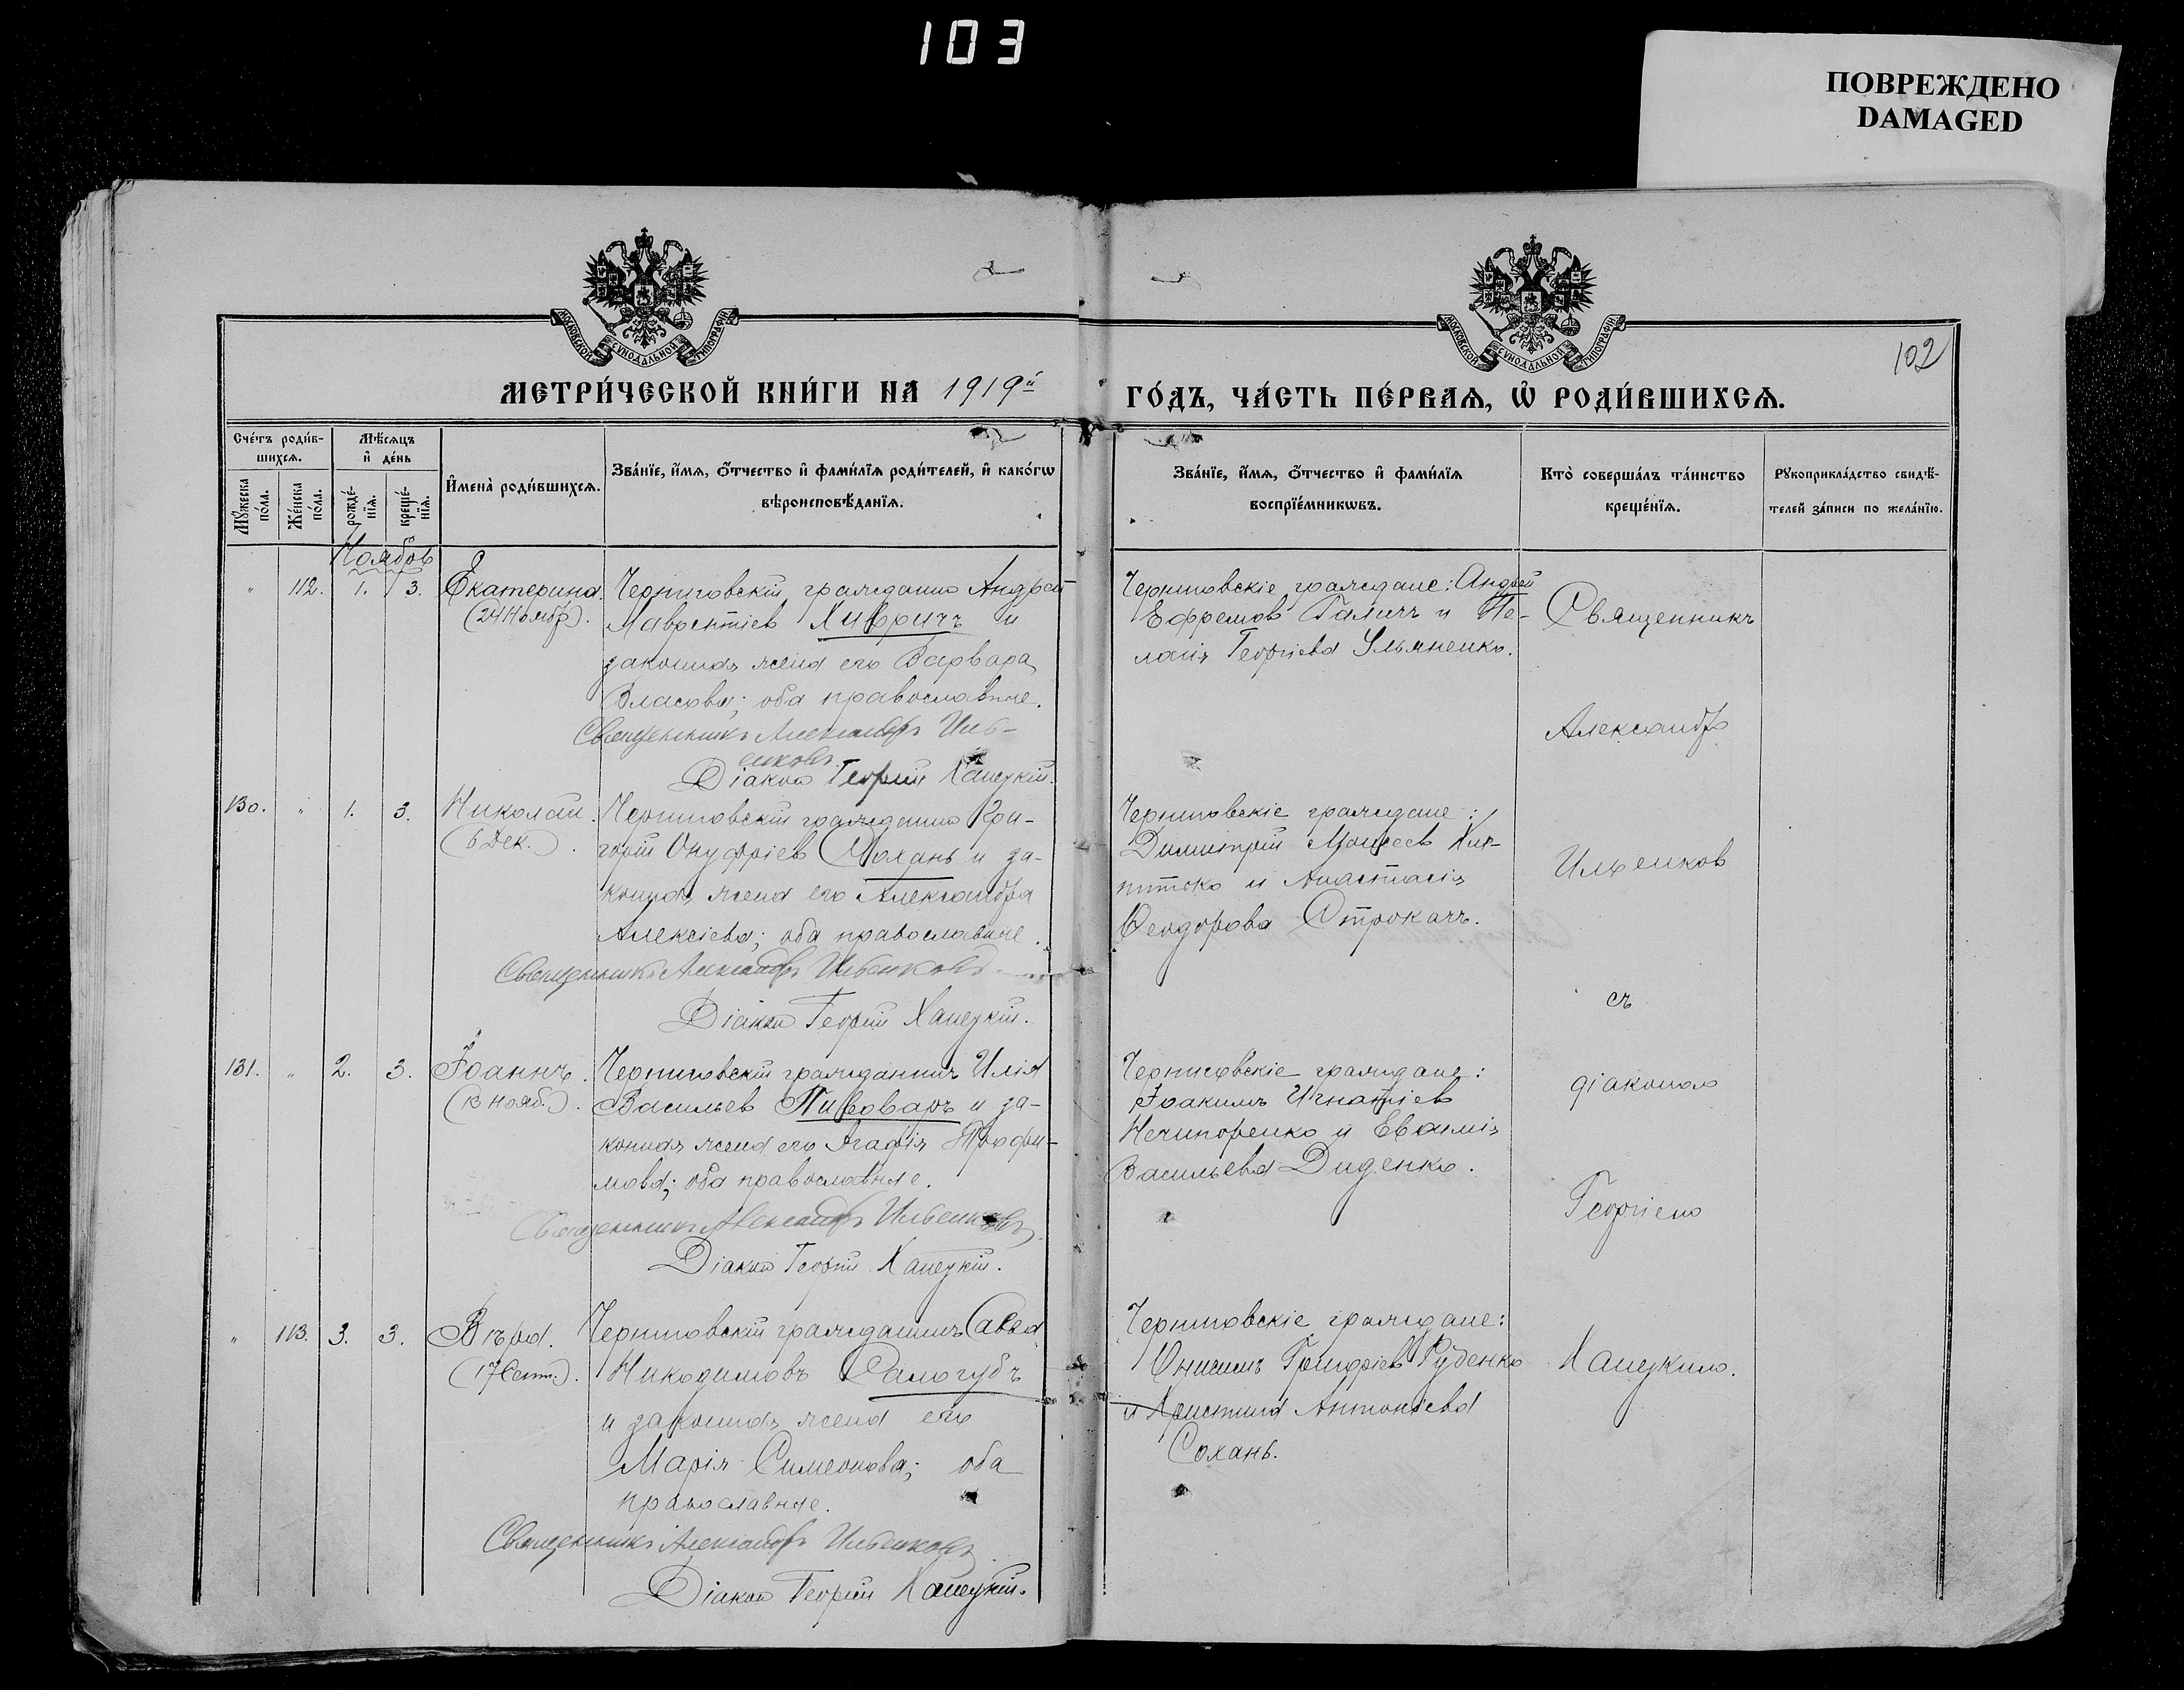 103
ПОВРЕЖДЕНО
DAMAGED
МОСКОВСКОЙ СУНОДАЛЬНОЙ ТИПОГРАФІИ
МОСКОВСКОЙ СУНОДАЛЬНОЙ ТИПОГРАФІИ
102
МЕТРИ́ЧЕСКОЙ КНИ́ГИ НА 1919й
ГО́ДЪ, ЧА́СТЬ ПЕ́РВАѦ, Ѡ҆ РОДИ́ВШИХСѦ.
Сче́тъ роди́в-
шихсѧ.
Мѣ́сѧцъ
и҆ де́нь
Мꙋ́жеска
по́ла.
Же́нска
по́ла.
рожде́-
нїѧ.
креще́-
нїѧ.
И҆мена̀ роди́вшихсѧ.
Зва́нїе, и҆́мѧ, о҆́тчество и҆ фами́лїѧ роди́телей, и҆ како́гѡ
вѣроисповѣ́данїѧ.
Зва́нїе, и҆́мѧ, о҆́тчество и҆ фами́лїѧ
воспрїе́мникѡвъ.
Кто̀ соверша́лъ та́инство
креще́нїѧ.
Рꙋкоприкла́дство свидѣ́-
телей за́писи по жела́нїю.
Ноябрь
" 112. 1. 3. Екатерина.
(24 Ноябр.).
Черниговскій гражданинъ Андрей
Лаврентіев Хиврич и
законная жена его Варвара
Власова; оба православные.
Священникъ Александръ Иль-
енковъ
Діакон Георгій Ханецкій.
Черниговскіе граждане: Андрей
Ефремов Галичъ и Пе-
лагія Георгіева Ульяненко.
Священникъ
Александр
130. " 1. 3. Николай.
(6 Дек.).
Черниговскій гражданин Гри-
горій Онуфріев Сохань и за-
конная жена его Александра
Алексіева; оба православные.
Священникъ Александръ Ильенковъ
Діакон Георгій Ханецкій.
Черниговскіе граждане:
Димитрій Моисеев
и Анастасія
Ѳеодорова Строкачъ.
Ильенков
съ
131. " 2. 3. Іоаннъ.
(13 Нояб.).
Черниговскій гражданинъ Илія
Васильев Пивоваръ и за-
конная жена его Агафія Трофи-
мова; оба православные.
Священникъ Александръ Ильенковъ
Діакон Георгій Ханецкій.
Черниговскіе граждане:
Іоакимъ Игнатіев
Нечипоренко и Евѳимія
Васильева Диденко.
діаконом
Георгіем
" 113. 3. 3. Вѣра.
(17 Сент.).
Черниговскій гражданинъ Савва
Никодимовъ Саллогубъ
и законная жена его
Марія Симеонова; оба
православные.
Священникъ Александръ Ильенковъ
Діакон Георгій Ханецкій.
Черниговскіе граждане:
Онисимъ Григоріев Руденко
и Христина Антоніева
Сохань.
Ханецким.